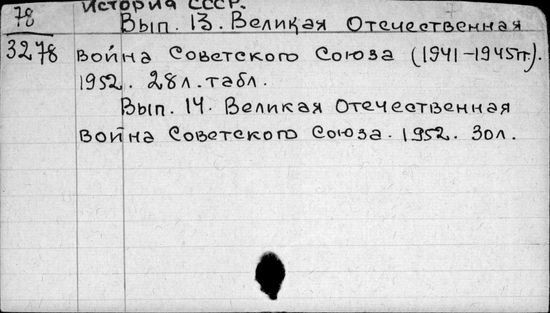 78
3278
История СССР.
Вып. 13. Великая Отечественная
война Советского Союза (1941-1945гг.).
1952. 28л.табл.
Вып. 14. Великая Отечественная
война Советского Союза. 1952. 30л.